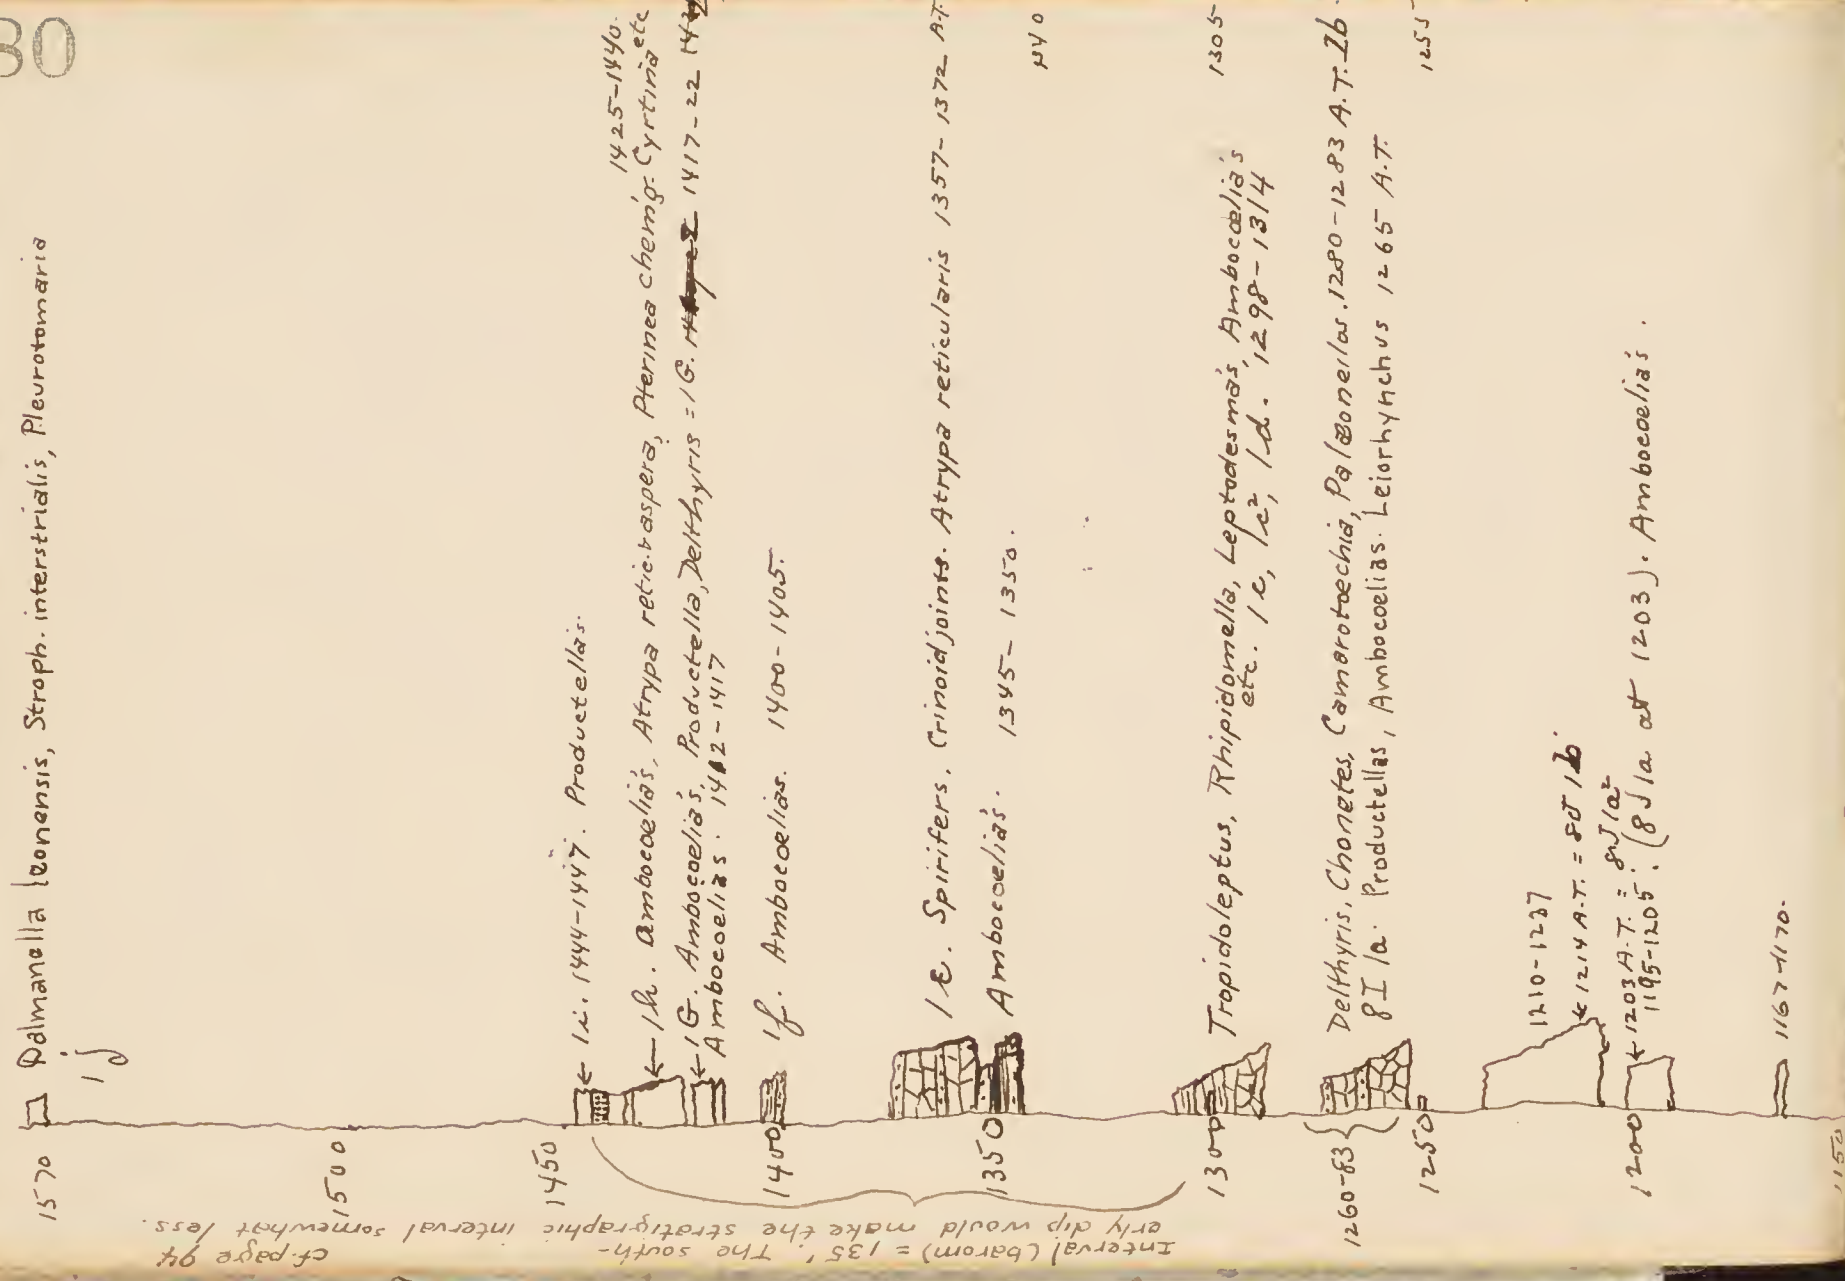 80
Dalmanella leonensis, Stroph. interstrialis, Pleurotomaria
1j
1570
1500
← 1i. 1444-1447. Productellas.
1450
1425-1440.
← 1h. Ambocoelias, Atrypa retic. & aspera, Pterinea chemg. Cyrtina etc
← 1G. Ambocoelias, Productella, Delthyris = 1G. 1417-22
Ambocoelias. 1412-1417
1f. Ambocoelias. 1400-1405.
1400
1e. Spirifers. Crinoid joints. Atrypa reticularis 1357-1372 A.T.
Ambocoelias. 1345-1350.
1340
1350
1305
Tropidoleptus, Rhipidomella, Leptodesmas, Ambocoelias
etc. 1c, 1c², 1d. 1298-1314
1300
Delthyris, Chonetes, Camarotoechia, Palaeoneilos. 1280-1283 A.T. 2b.
8I 1a. Productellas, Ambocoelias. Leiorhynchus 1265 A.T.
1255
1260-83
1250
1210-1237
← 1214 A.T. = 8J 1b
← 1203 A.T. = 8J 1a²
1195-1205. (8J 1a at 1203). Ambocoelias.
1200
1167-1170.
1150
Interval (barom) = 135'. The south-
erly dip would make the stratigraphic interval somewhat less.
cf. page 94